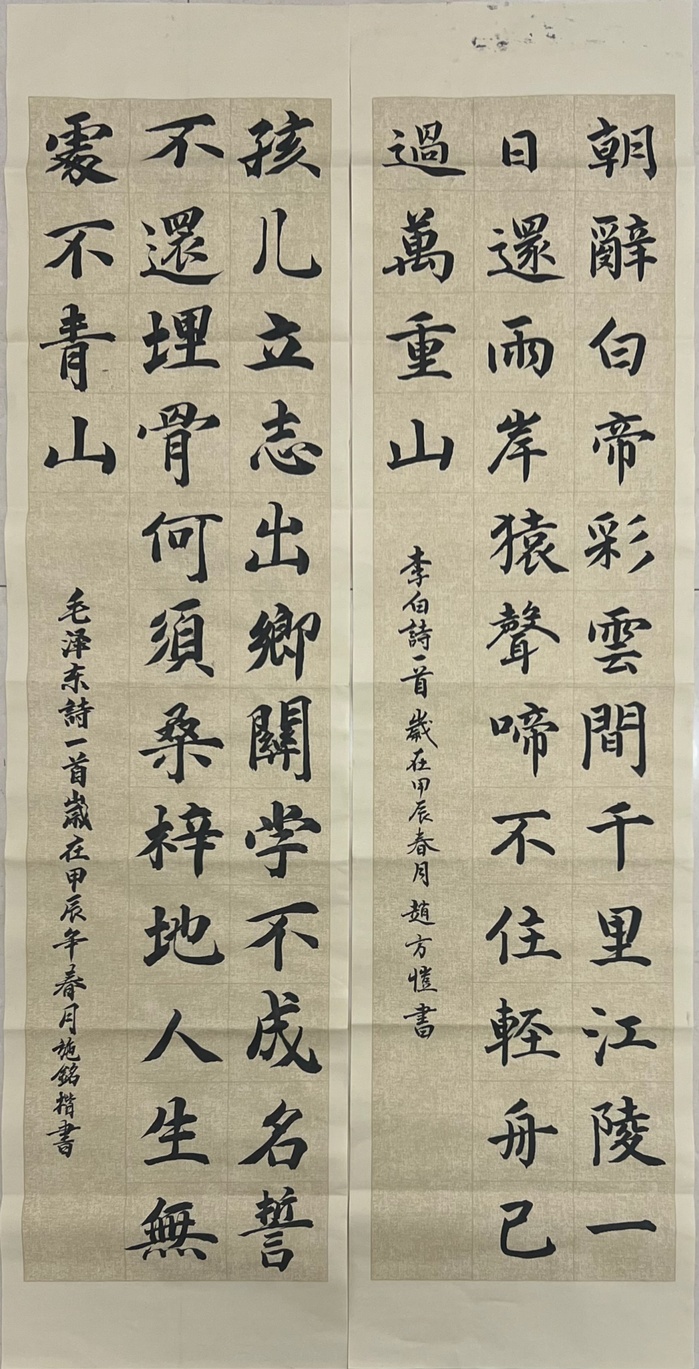 朝辭白帝彩雲間千里江陵一
日還兩岸猿聲啼不住輕舟已
過萬重山
李白詩一首 歲在甲辰春月 趙方愷書
孩儿立志出鄉關学不成名誓
不還埋骨何須桑梓地人生無
處不青山
毛泽东詩一首歲在甲辰年春月施銘楷書